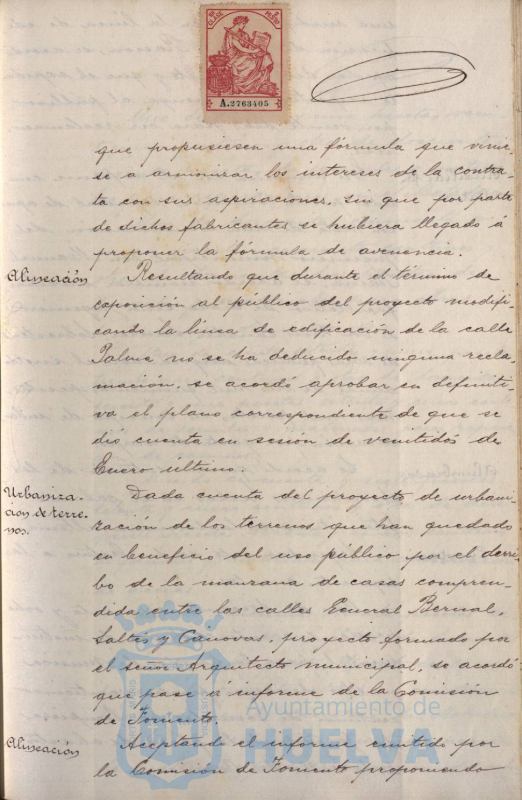 A.2763405
que propusiesen una fórmula que vinie-
se a armonizar los intereses de la contra-
ta con sus aspiraciones, sin que por parte
de dichos fabricantes se hubiera llegado á
proponer la fórmula de avenencia.
Alineación
Resultando que durante el término de
exposición al público del proyecto modifi-
cando la linea de edificación de la calle
Palma no se ha deducido ninguna recla-
mación, se acordó aprobar en definiti-
va el plano correspondiente de que se
dió cuenta en sesión de veintidós de
Enero último.
Urbaniza-
ción de terre-
nos.
Dada cuenta del proyecto de urbani-
zación de los terrenos que han quedado
en beneficio del uso público por el derri-
bo de la manzana de casas compren-
dida entre las calles General Bernal,
Saltés y Canovas, proyecto formado por
el señor Arquitecto municipal, se acordó
que pase á informe de la Comisión
de Fomento.
Alineación
Aceptando el informe emitido por
la Comisión de Fomento proponiendo
Ayuntamiento de
HUELVA